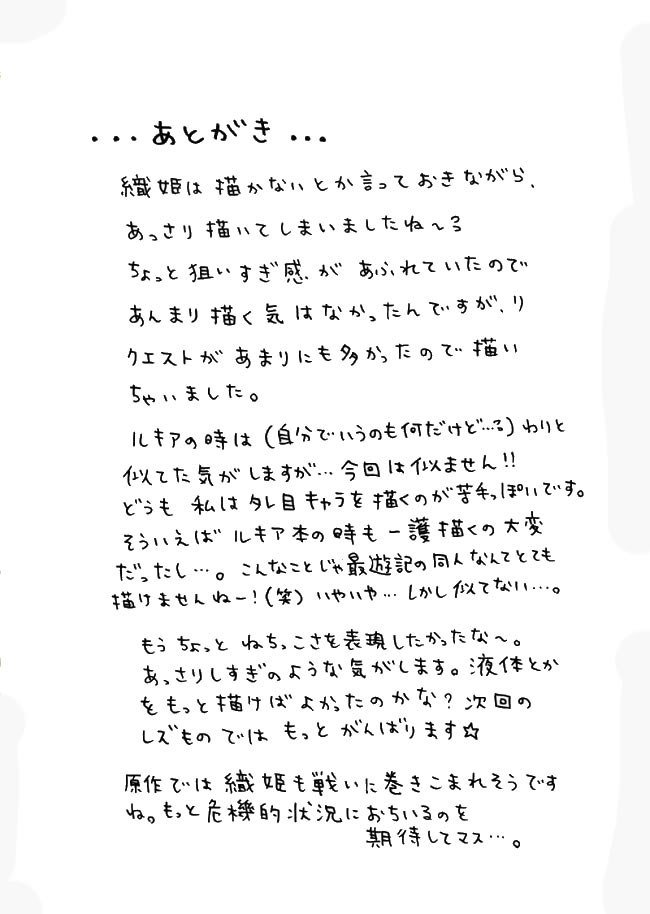 ・・・あとがき・・・
織姫は描かないとか言っておきながら、
あっさり描いてしまいましたね〜る
ちょっと狙いすぎ感があふれていたので
あんまり描く気はなかったんですが、リ
クエストがあまりにも多かったので描い
ちゃいました。
ルキアの時は(自分でいうのも何だけど…る)わりと
似てた気がしますが…今回は似ません!!
どうも私はタレ目キャラを描くのが苦手っぽいです。
そういえばルキア本の時も一護描くの大変
だったし…。こんなことじゃ最遊記の同人なんてとても
描けませんねー!(笑)いやいや…しかし似てない…。
もうちょっとねちっこさを表現したかったな〜。
あっさりしすぎのような気がします。液体とか
をもっと描けばよかったのかな?次回の
レズものではもっとがんばります☆
原作では織姫も戦いに巻きこまれそうです
ね。もっと危機的状況におちいるのを
期待してマス…。